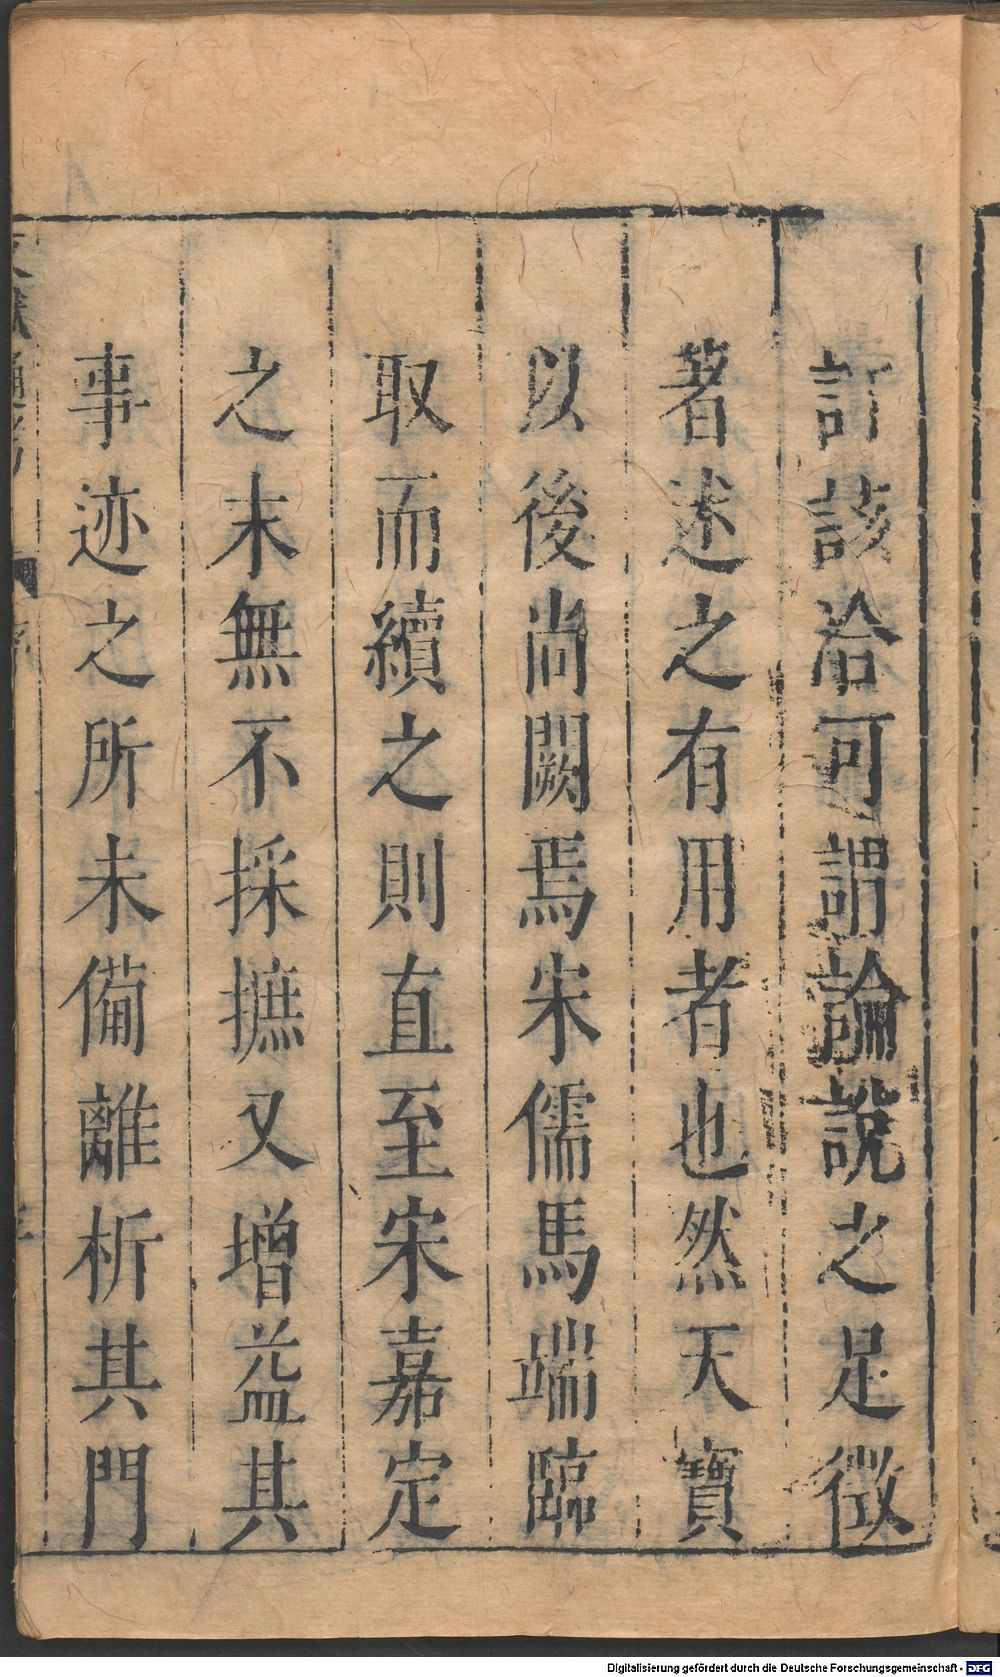 訂該洽可謂論說之足徵
著述之有用者也然天寶
以後尚闕焉宋儒馬端臨
取而續之則直至宋嘉定
之末無不採摭又增益其
事迹之所未備離析其門
Digitalisierung gefördert durch die Deutsche Forschungsgemeinschaft - DFG